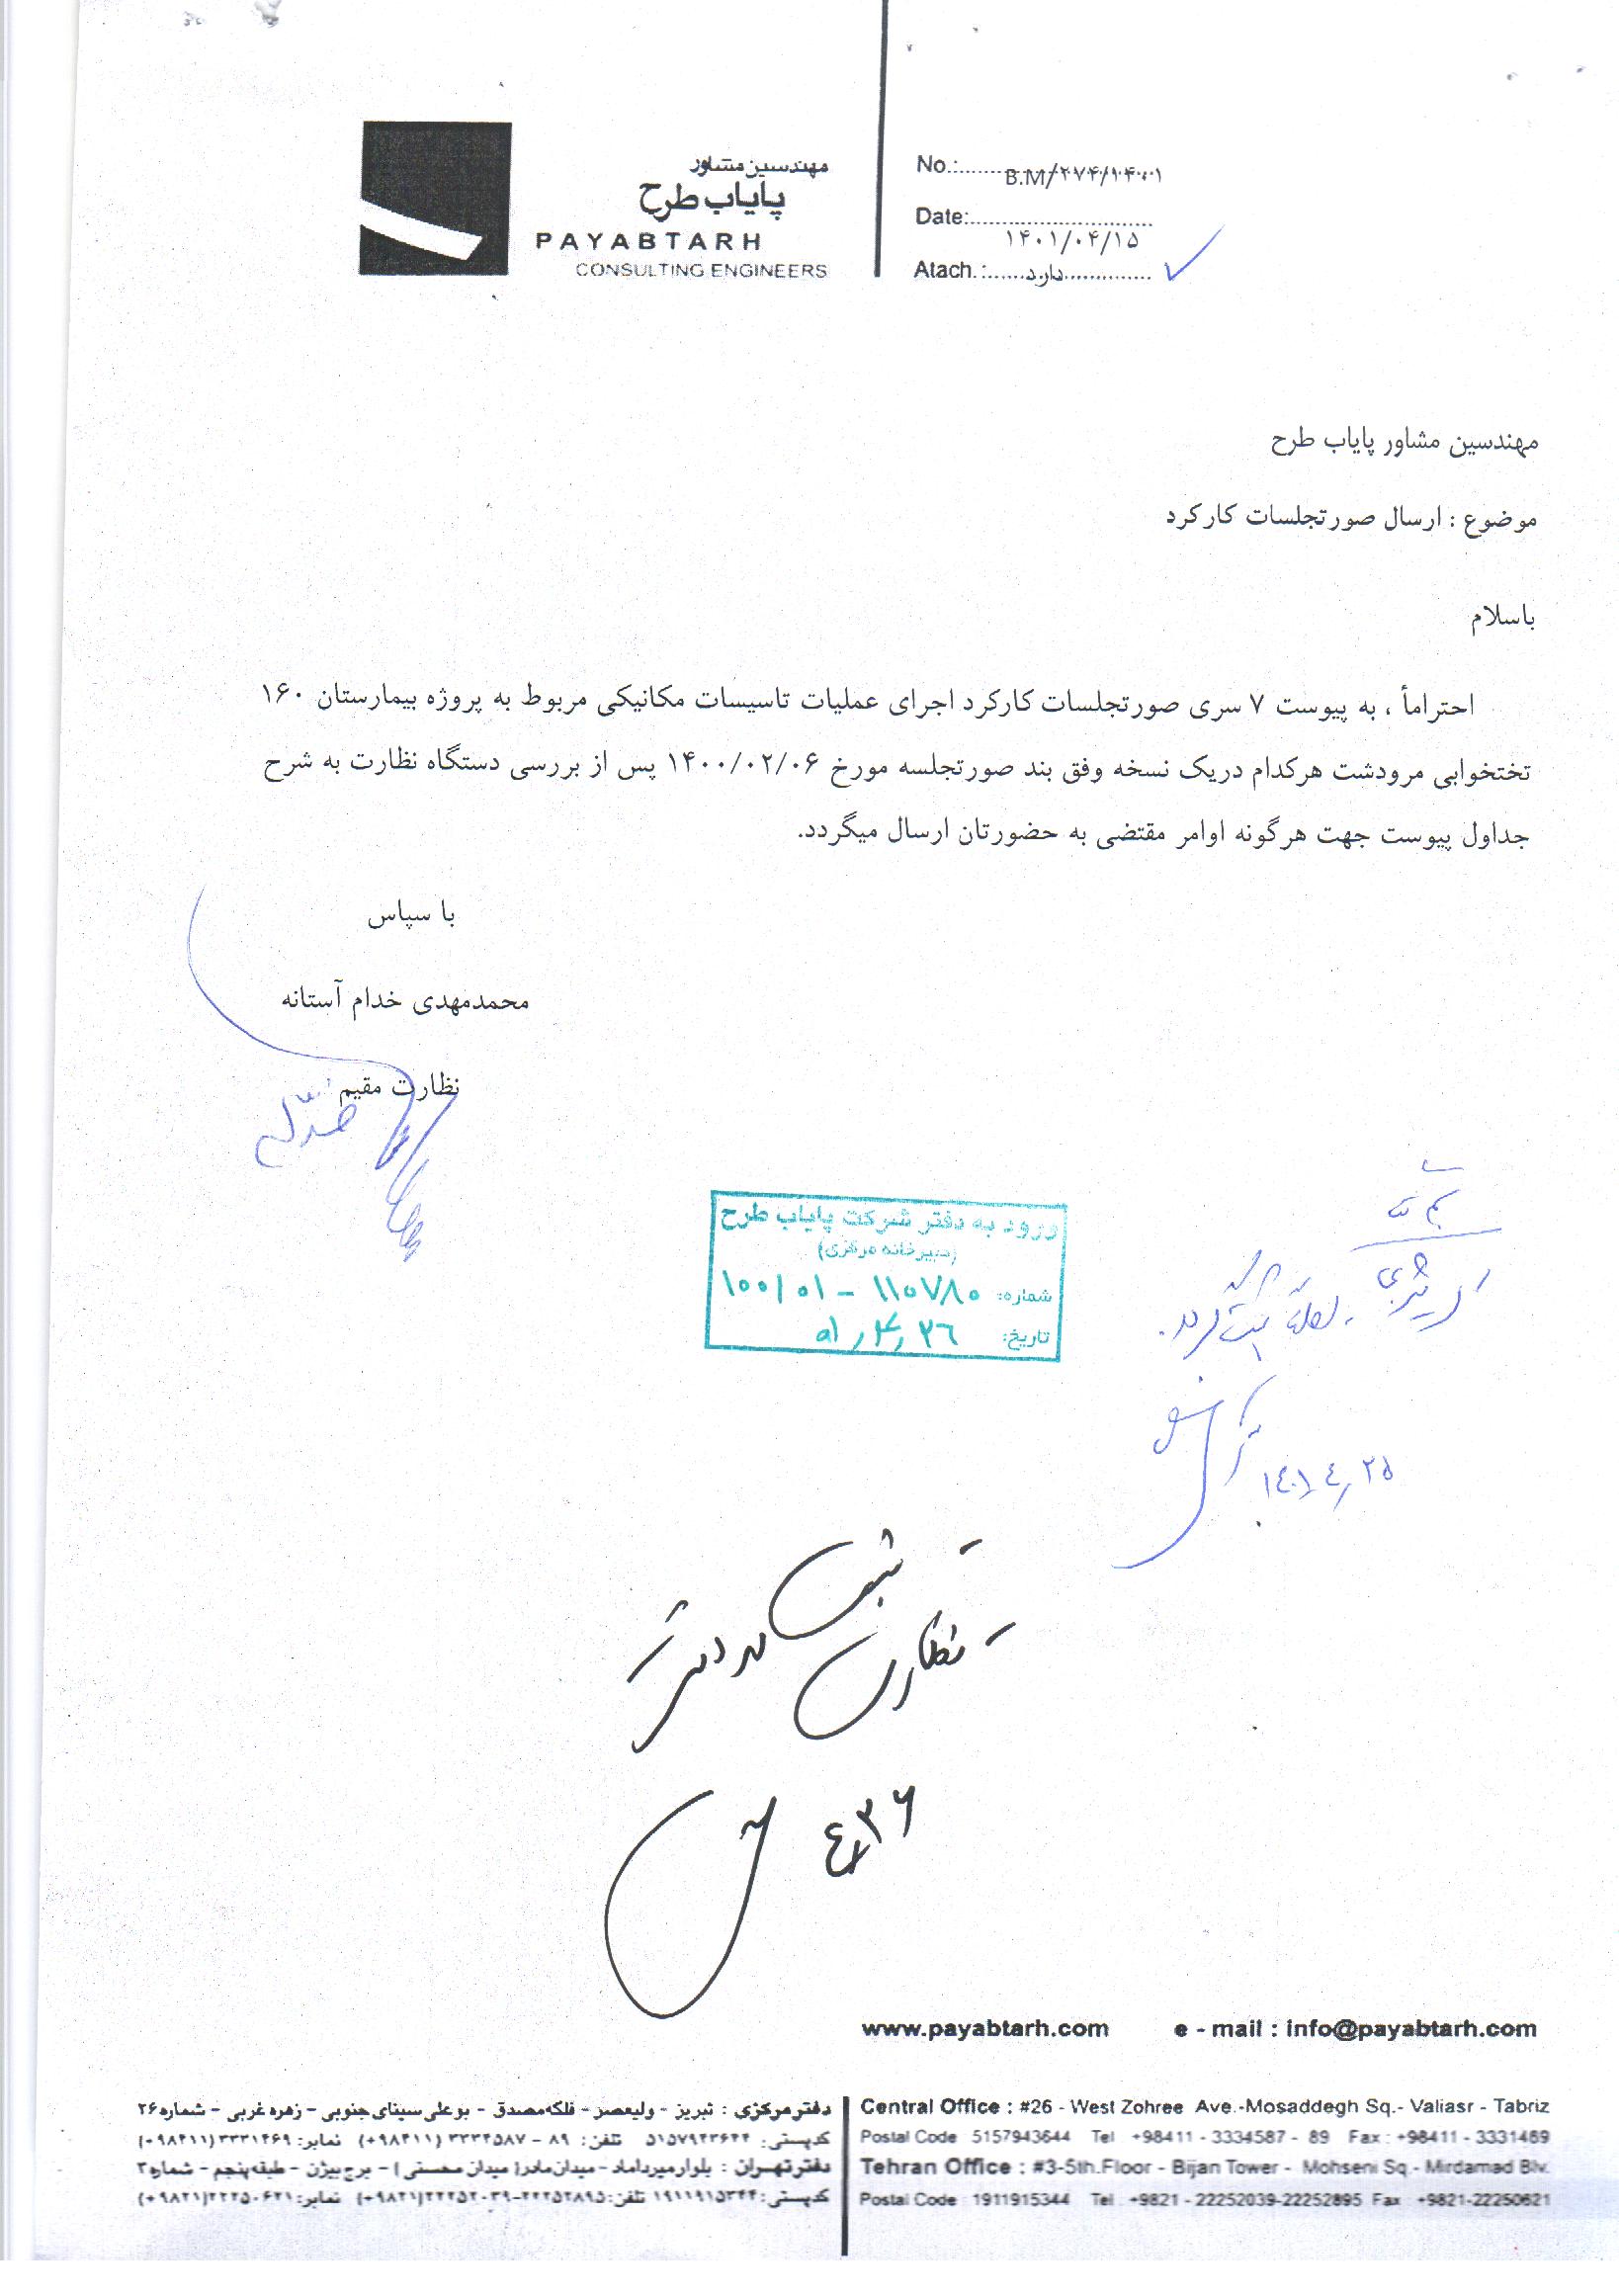 مهندسین مشاور
پایاب طرح
PAYABTARH
CONSULTING ENGINEERS
No.:.......B.M/۲۷۴/۱۴۰۰۱
Date:.......۱۴۰۱/۰۴/۱۵
Atach.:.......دارد.......
مهندسین مشاور پایاب طرح
موضوع : ارسال صورتجلسات کارکرد
باسلام
احتراماً ، به پیوست ۷ سری صورتجلسات کارکرد اجرای عملیات تاسیسات مکانیکی مربوط به پروژه بیمارستان ۱۶۰
تختخوابی مرودشت هرکدام دریک نسخه وفق بند صورتجلسه مورخ ۱۴۰۰/۰۲/۰۶ پس از بررسی دستگاه نظارت به شرح
جداول پیوست جهت هرگونه اوامر مقتضی به حضورتان ارسال میگردد.
با سپاس
محمدمهدی خدام آستانه
نظارت مقیم
ورود به دفتر شرکت پایاب طرح
(دبیرخانه مرکزی)
شماره: ۱۰۰/۰۱ - ۱۱۰۷۸۰
تاریخ: ۰۱,۴,۲۶
۱۴۰۱,۴,۲۵
- ثبت در دفتر
- نظارت
۴,۲۶
www.payabtarh.com e - mail : info@payabtarh.com
دفتر مرکزی : تبریز - ولیعصر - فلکه مصدق - بوعلی سینای جنوبی - زهره غربی - شماره ۲۶
کدپستی: ۵۱۵۷۹۴۳۶۴۴ تلفن: ۸۹ - ۳۳۳۴۵۸۷ (۹۸۴۱۱+) نمابر: ۳۳۳۱۴۶۹ (۹۸۴۱۱+)
دفتر تهران : بلوار میرداماد - میدان مادر( میدان محسنی ) - برج بیژن - طبقه پنجم - شماره ۳
کدپستی: ۱۹۱۱۹۱۵۳۴۴ تلفن: ۲۲۲۵۲۸۹۵-۲۲۲۵۲۰۳۹ (۹۸۲۱+) نمابر: ۲۲۲۵۰۶۲۱ (۹۸۲۱+)
Central Office : #26 - West Zohree Ave.-Mosaddegh Sq.- Valiasr - Tabriz
Postal Code 5157943644 Tel +98411 - 3334587 - 89 Fax : +98411 - 3331469
Tehran Office : #3-5th.Floor - Bijan Tower - Mohseni Sq.- Mirdamad Blv.
Postal Code 1911915344 Tel +9821 - 22252039-22252895 Fax +9821-22250621